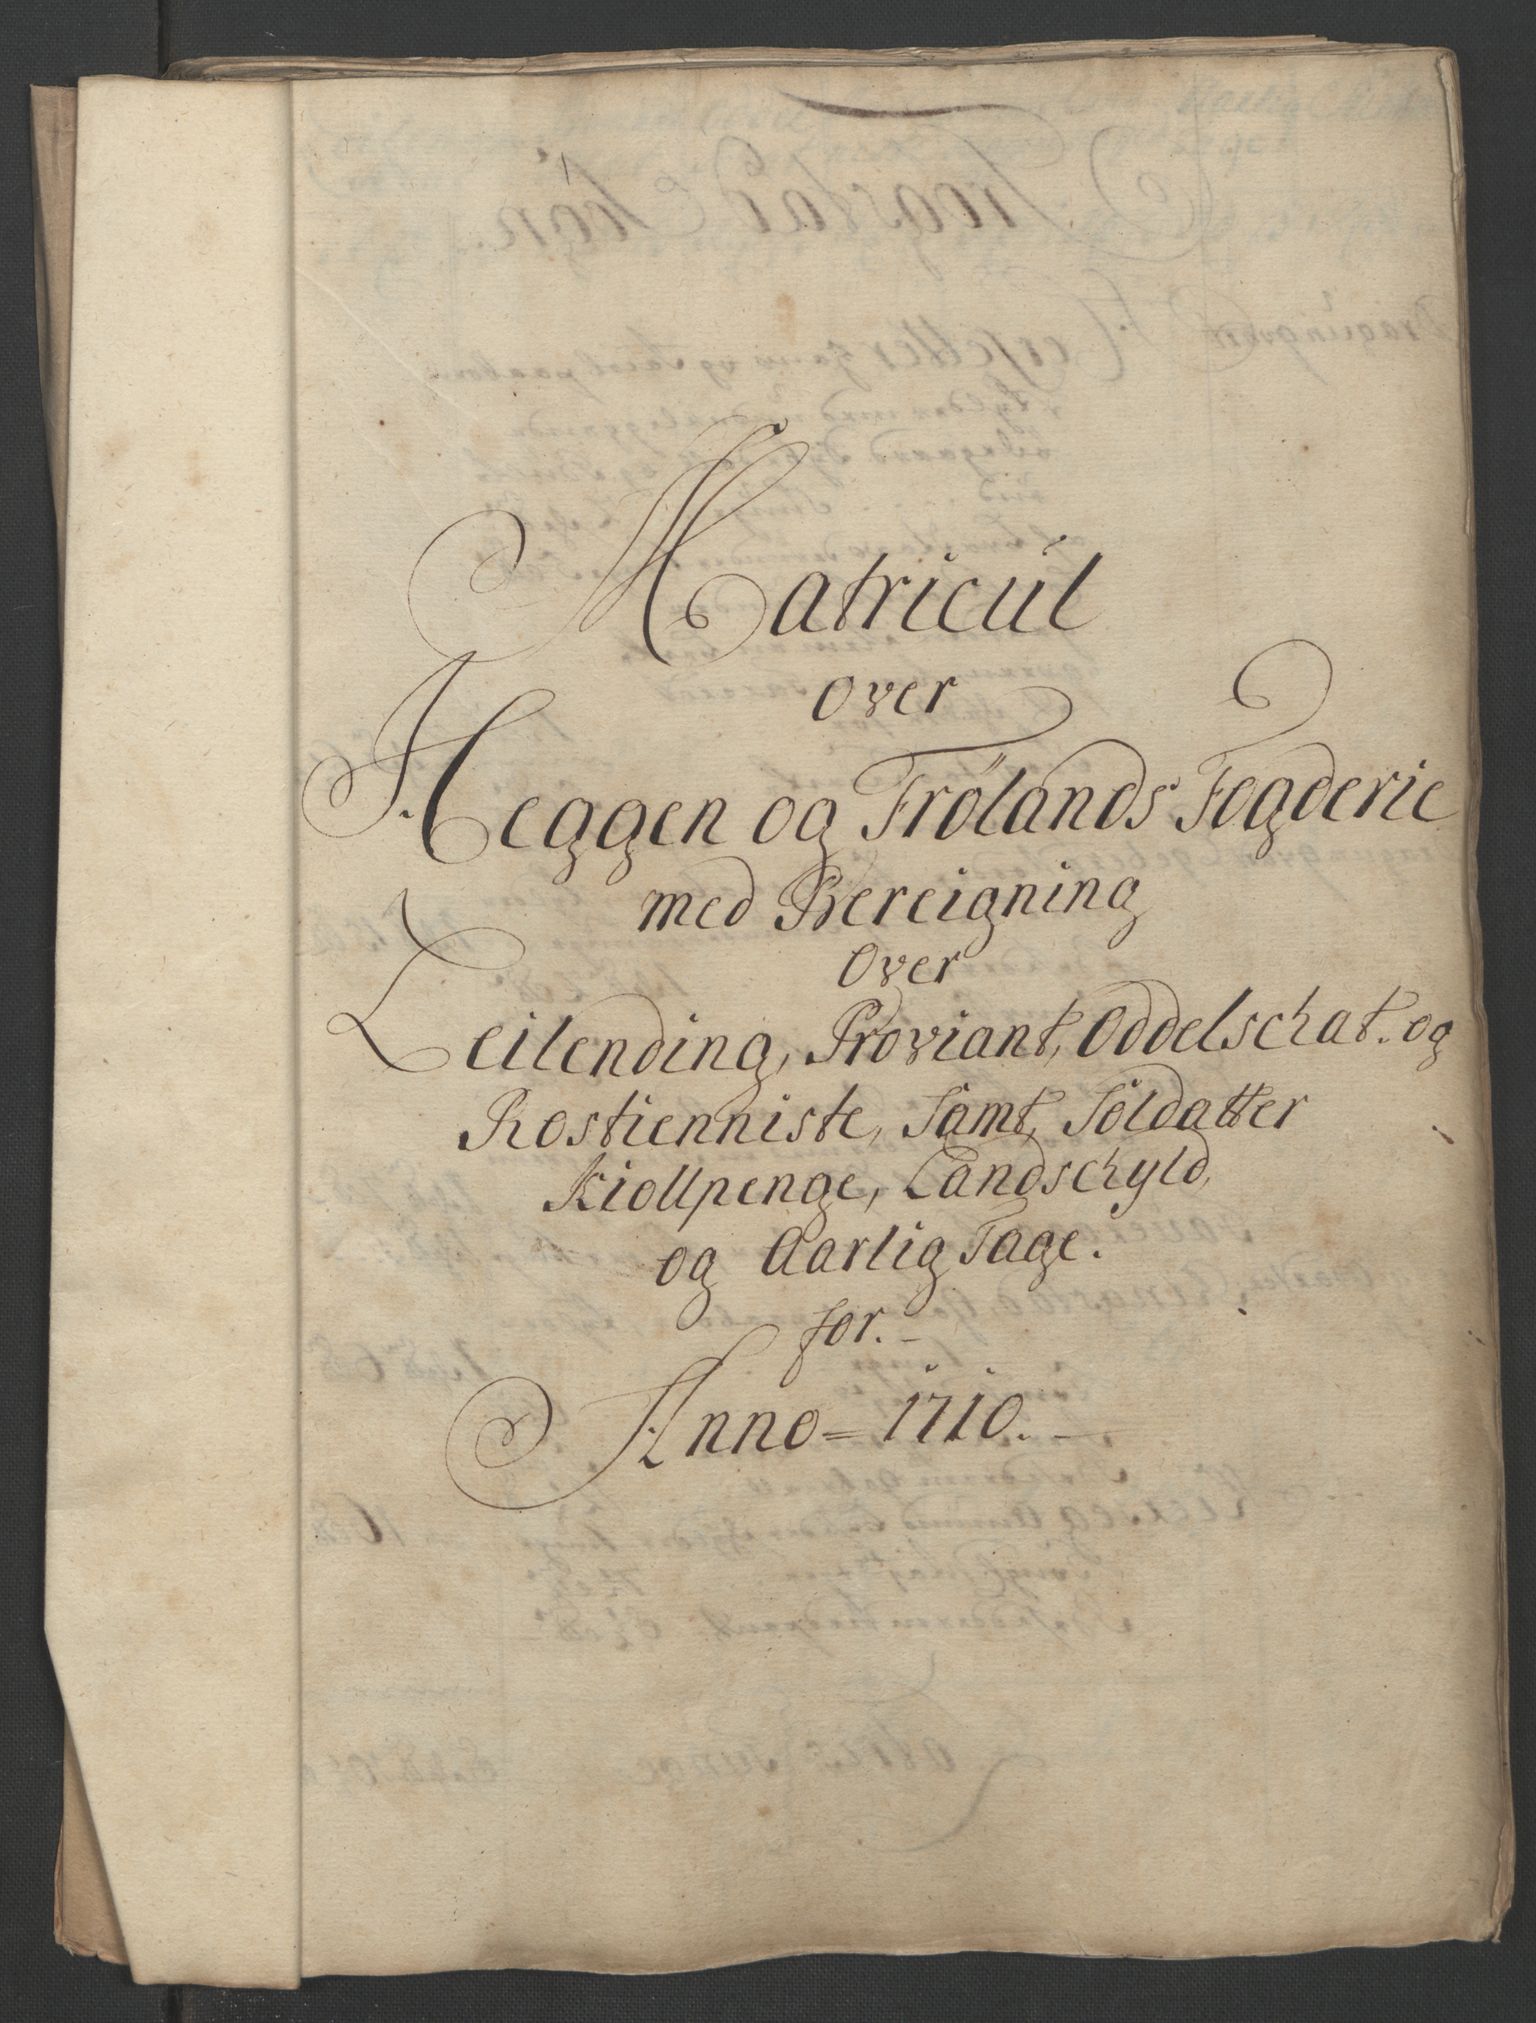 Matricul
over
Heggen og Frølands Fogderie
med Bereigning
Over
Leilending, Proviant, Oddelschat og
Rostienniste, Samt Soldatter
Kiollpenge, Landschyld,
og Aarlig Tage.
for.
Anno = 1710.